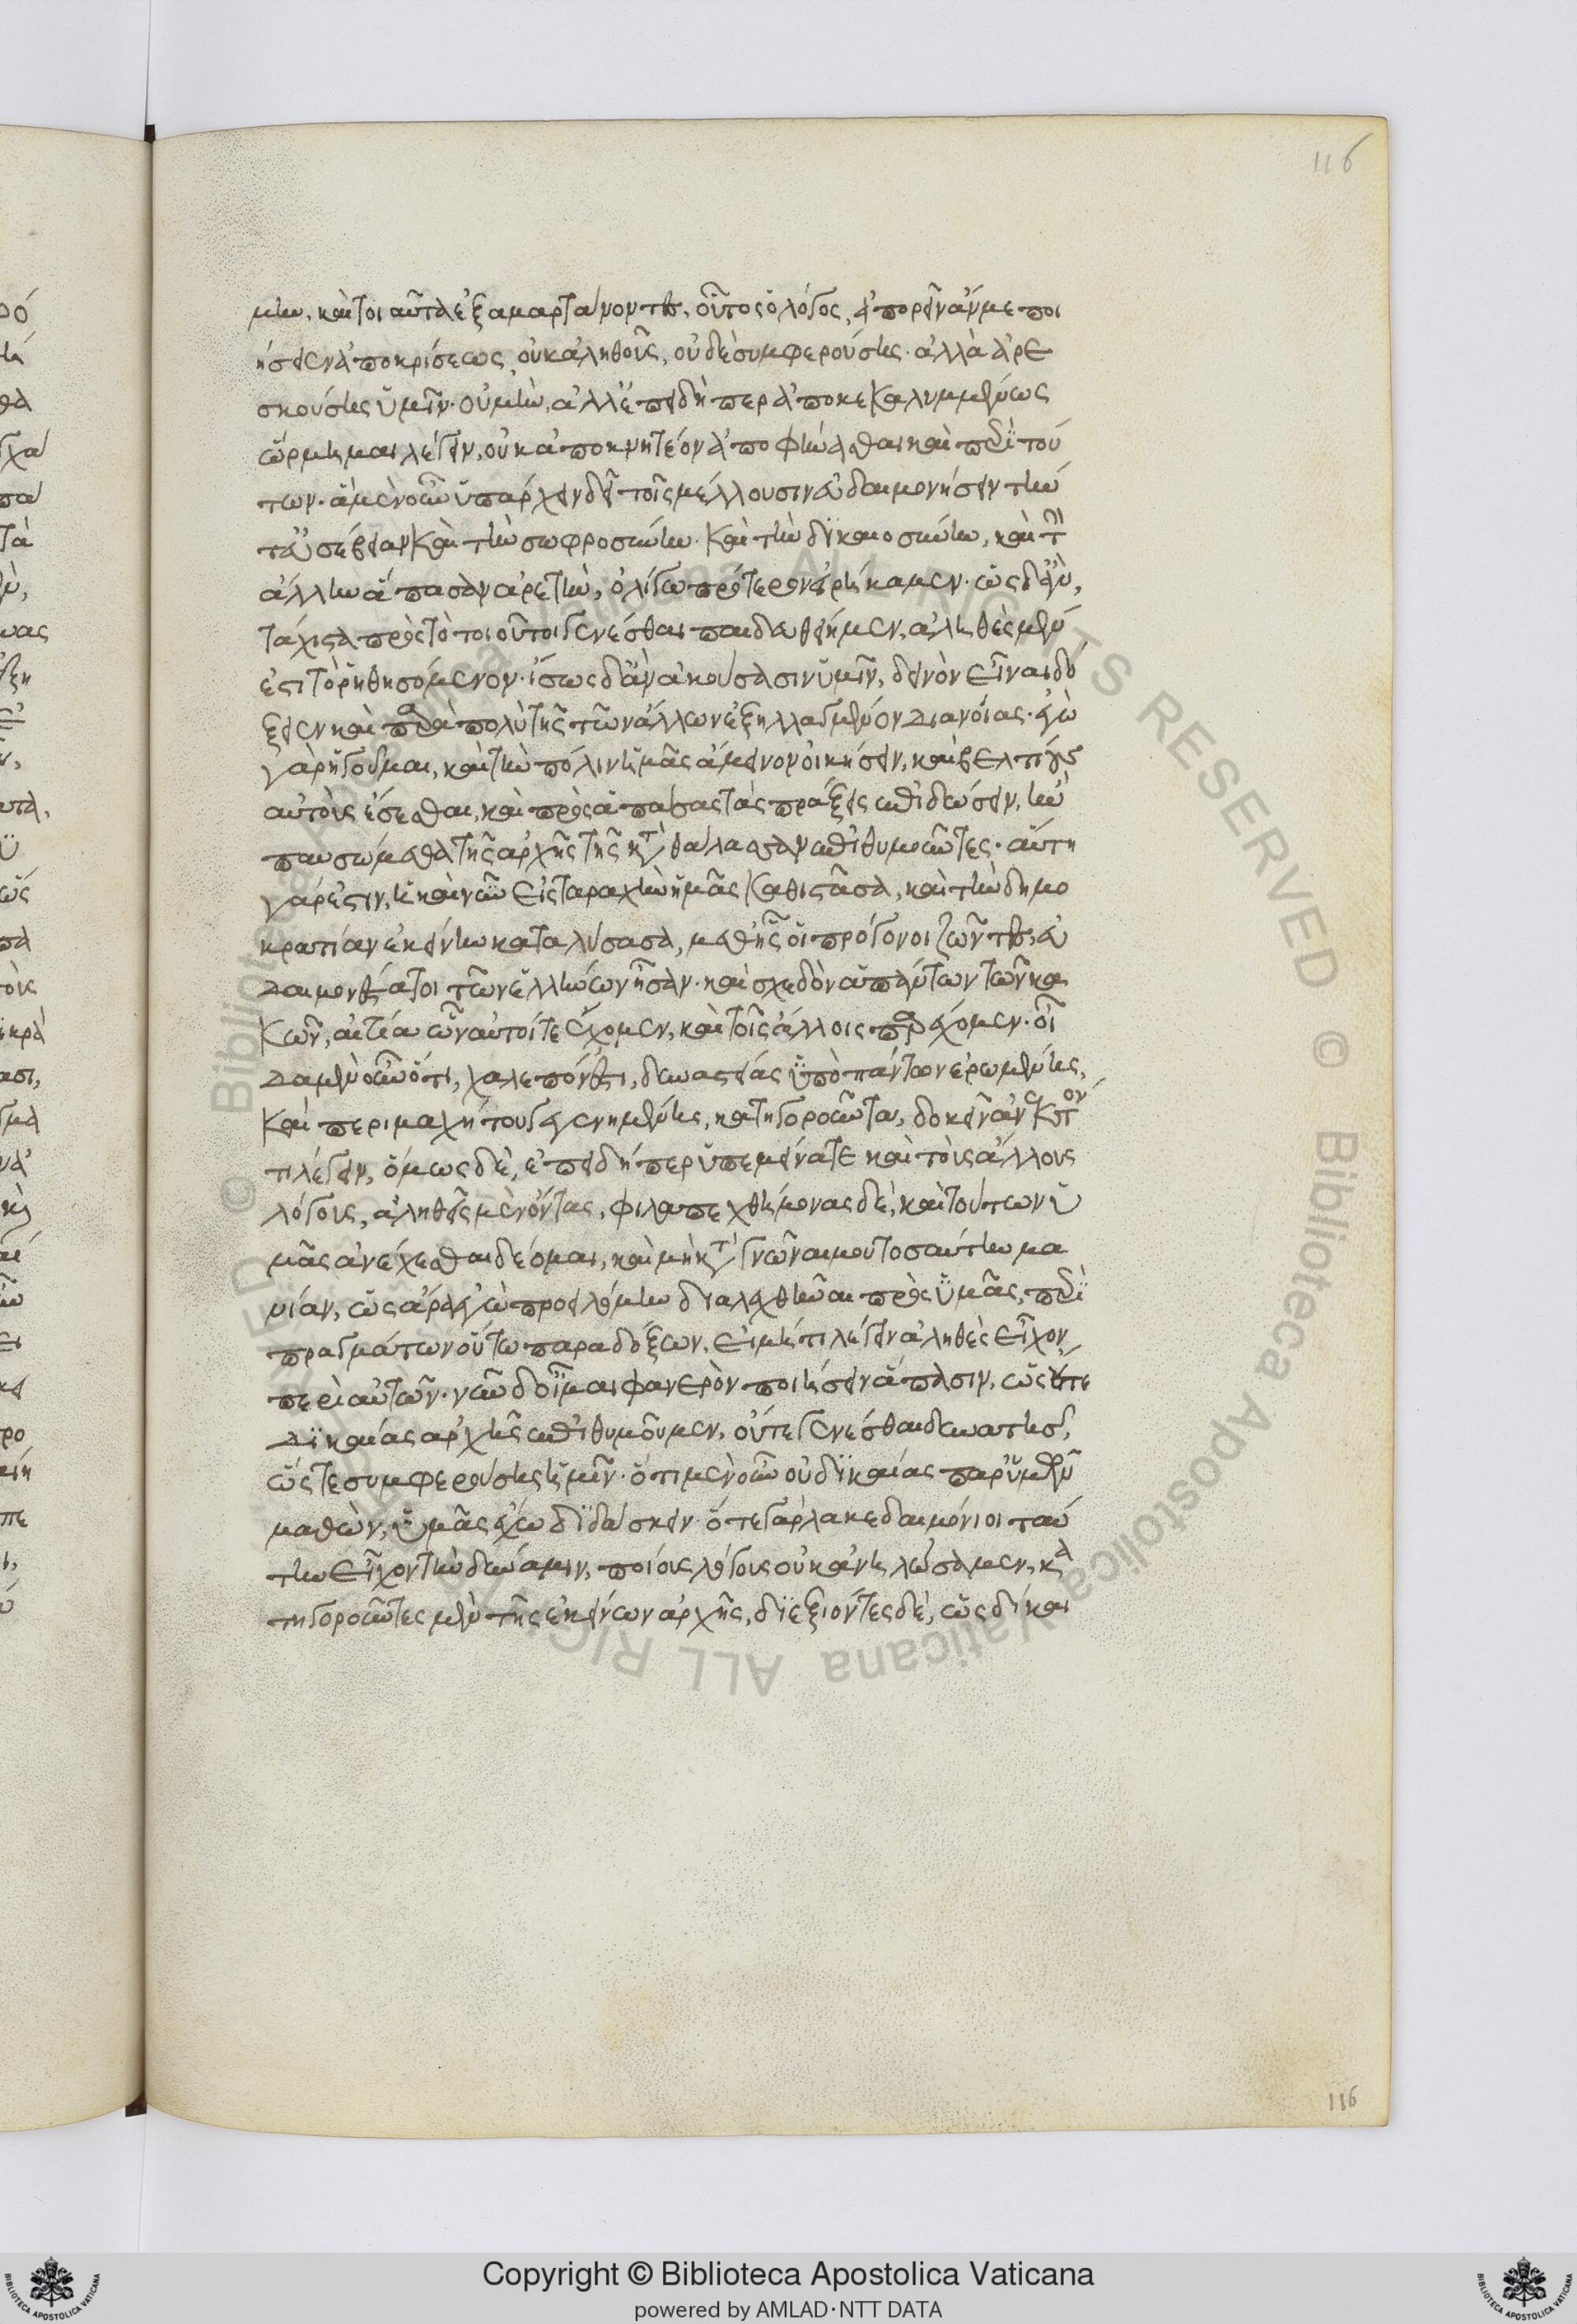 μὴν, καὶ τοι αὐτὰ ἐξαμαρτάνοντες, οὗτος ὁ λόγος, ἀπορεῖν ἄν με ποι
ήσειεν ἀποκρίσεως, οὐκ ἀληθοῦς, οὐδὲ συμφερούσης· ἀλλὰ ἀρε
σκούσης ὑμῖν· οὐ μὴν, ἀλλ' ἐπειδὴ περ ἀποκεκαλυμμένως
ὥρμημαι λέγειν, οὐκ ἀποκνητέον ἀποφήνασθαι καὶ περὶ τού
των· ἃ μὲν οὖν ὑπάρχειν δεῖ τοῖς μέλλουσιν εὐδαιμονήσειν τὴν
τ' εὐσέβειαν καὶ τὴν σωφροσύνην· καὶ τὴν δικαιοσύνην, καὶ τὴν
ἄλλην ἅπασαν ἀρετὴν, ὀλίγω πρότερον εἰρήκαμεν· ὡς δ' ἂν,
τάχιστα πρὸς τὸ τοιοῦτοι γενέσθαι παιδευθείημεν, ἀληθὲς μέν
ἐστι τὸ ῥηθησόμενον· ἴσως δ' ἂν ἀκούσασιν ὑμῖν, δεινὸν εἶναι δό
ξειεν καὶ παρὰ πολὺ τῆς τῶν ἄλλων ἐξηλλαγμένον διανοίας· ἐγὼ
γὰρ ἡγοῦμαι, καὶ τὴν πόλιν ἡμᾶς ἄμεινον οἰκήσειν, καὶ βελτίους
αὐτοὺς ἔσεσθαι, καὶ πρὸς ἁπάσας τὰς πράξεις ἐπιδώσειν, ἢν
παυσώμεσθα τῆς ἀρχῆς τῆς κατὰ θάλασσαν ἐπιθυμοῦντες· αὕτη
γάρ ἐστιν, ἡ καὶ νῦν εἰς ταραχὴν ἡμᾶς καθιστᾶσα, καὶ τὴν δημο
κρατίαν ἐκείνην καταλύσασα, μεθ' ἧς οἱ πρόγονοι ζῶντες, εὐ
δαιμονέστατοι τῶν ἑλλήνων ἦσαν· καὶ σχεδὸν ἁπάντων τῶν κα
κῶν, αἰτία ὧν αὐτοί τε ἔχομεν, καὶ τοῖς ἄλλοις παρέχομεν· οἶ
δα μὲν οὖν ὅτι, χαλεπόν ἐστι, δυναστείας ὑπὸ πάντων ἐρωμένης,
καὶ περιμαχήτου γεγενημένης, κατηγοροῦντα, δοκεῖν ἀνεκτόν
τι λέγειν, ὅμως δὲ, ἐπειδήπερ ὑπεμείνατε καὶ τοὺς ἄλλους
λόγους, ἀληθεῖς μὲν ὄντας, φιλαπεχθήμονας δὲ, καὶ τούτων ὑ
μᾶς ἀνέχεσθαι δέομαι, καὶ μὴ καταγνῶναι μου τοσαύτην μα
νίαν, ὡς ἄρα ἐγὼ προειλόμην διαλεχθῆναι πρὸς ὑμᾶς, περὶ
πραγμάτων οὕτω παραδόξων, εἰ μή τι λέγειν ἀληθὲς εἶχον
περὶ αὐτῶν· νῦν δ' οἶμαι φανερὸν ποιήσειν ἅπασιν, ὡς οὔτε
δικαίας ἀρχῆς ἐπιθυμοῦμεν, οὔτε γενέσθαι δυνατῆς,
οὔτε συμφερούσης ἡμῖν· ὅτι μὲν οὖν οὐ δικαίας παρ' ὑμῶν
μαθὼν, ὑμᾶς ἔχω διδάσκειν· ὅτε γὰρ λακεδαιμόνιοι ταύ
την εἶχον τὴν δύναμιν, ποίους λόγους οὐκ ἀνηλώσαμεν, κα
τηγοροῦντες μὲν τῆς ἐκείνων ἀρχῆς, διεξιόντες δὲ, ὡς δίκαι